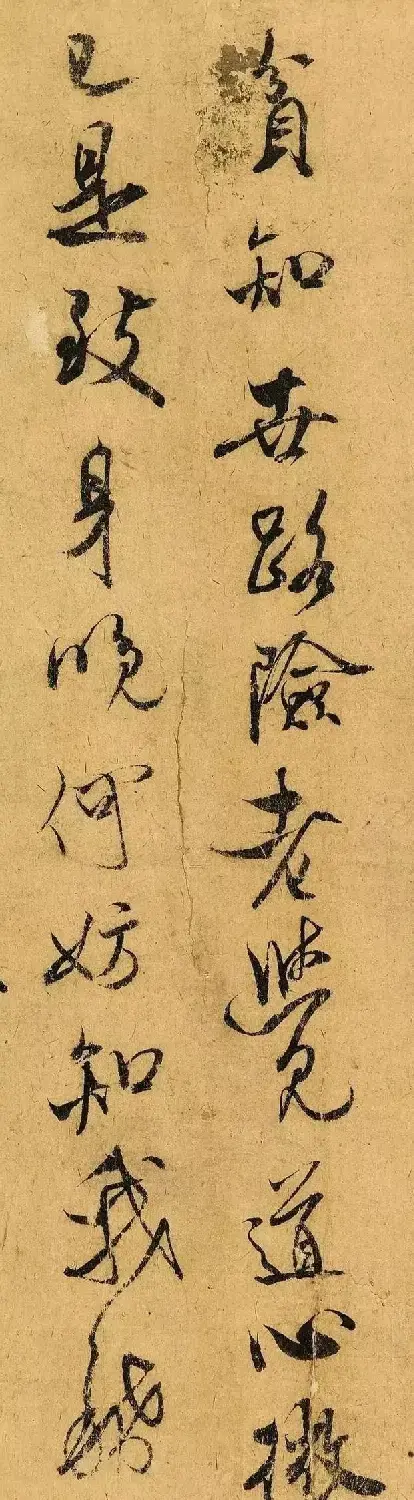 貧知世路險老覺道心微
已是致身晚何妨知我稀